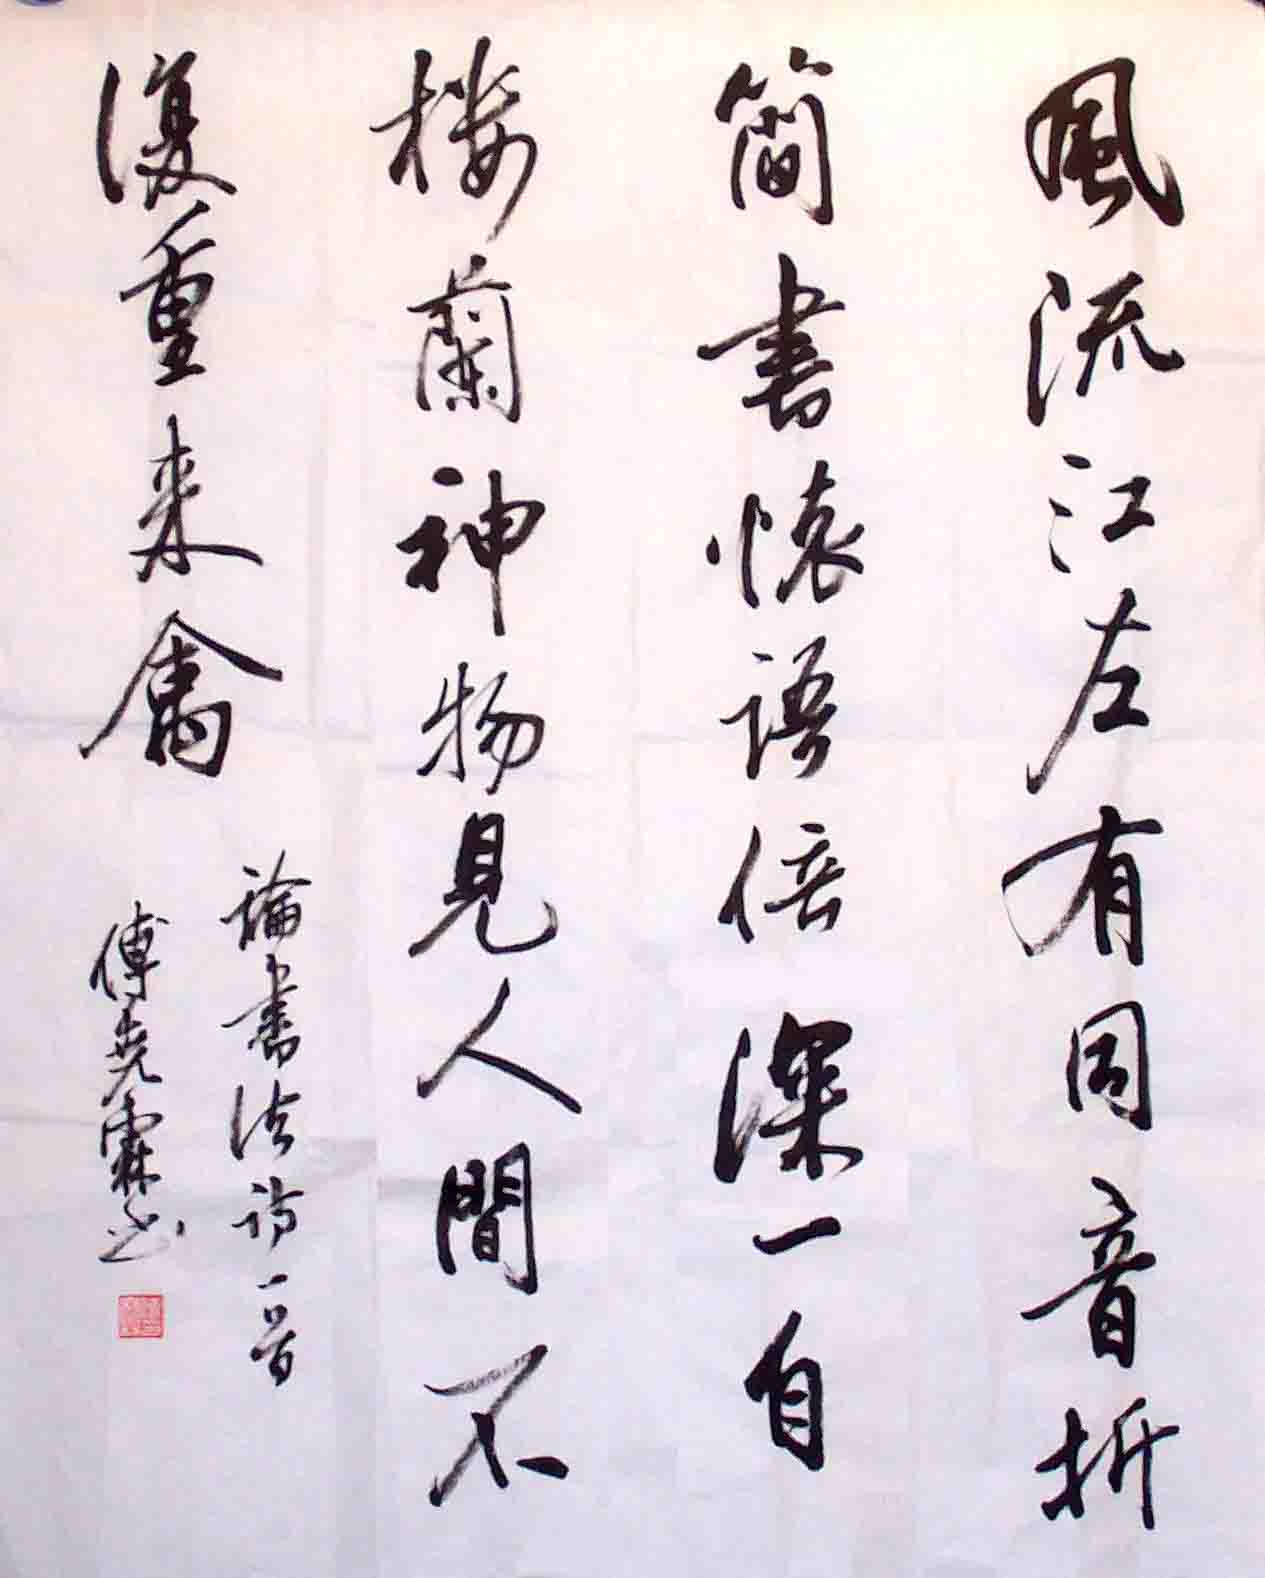 風流江左有同音折
簡書懷語倍深一自
樓蘭神物見人間不
復重來禽
論書法詩一首
傅堯霖書